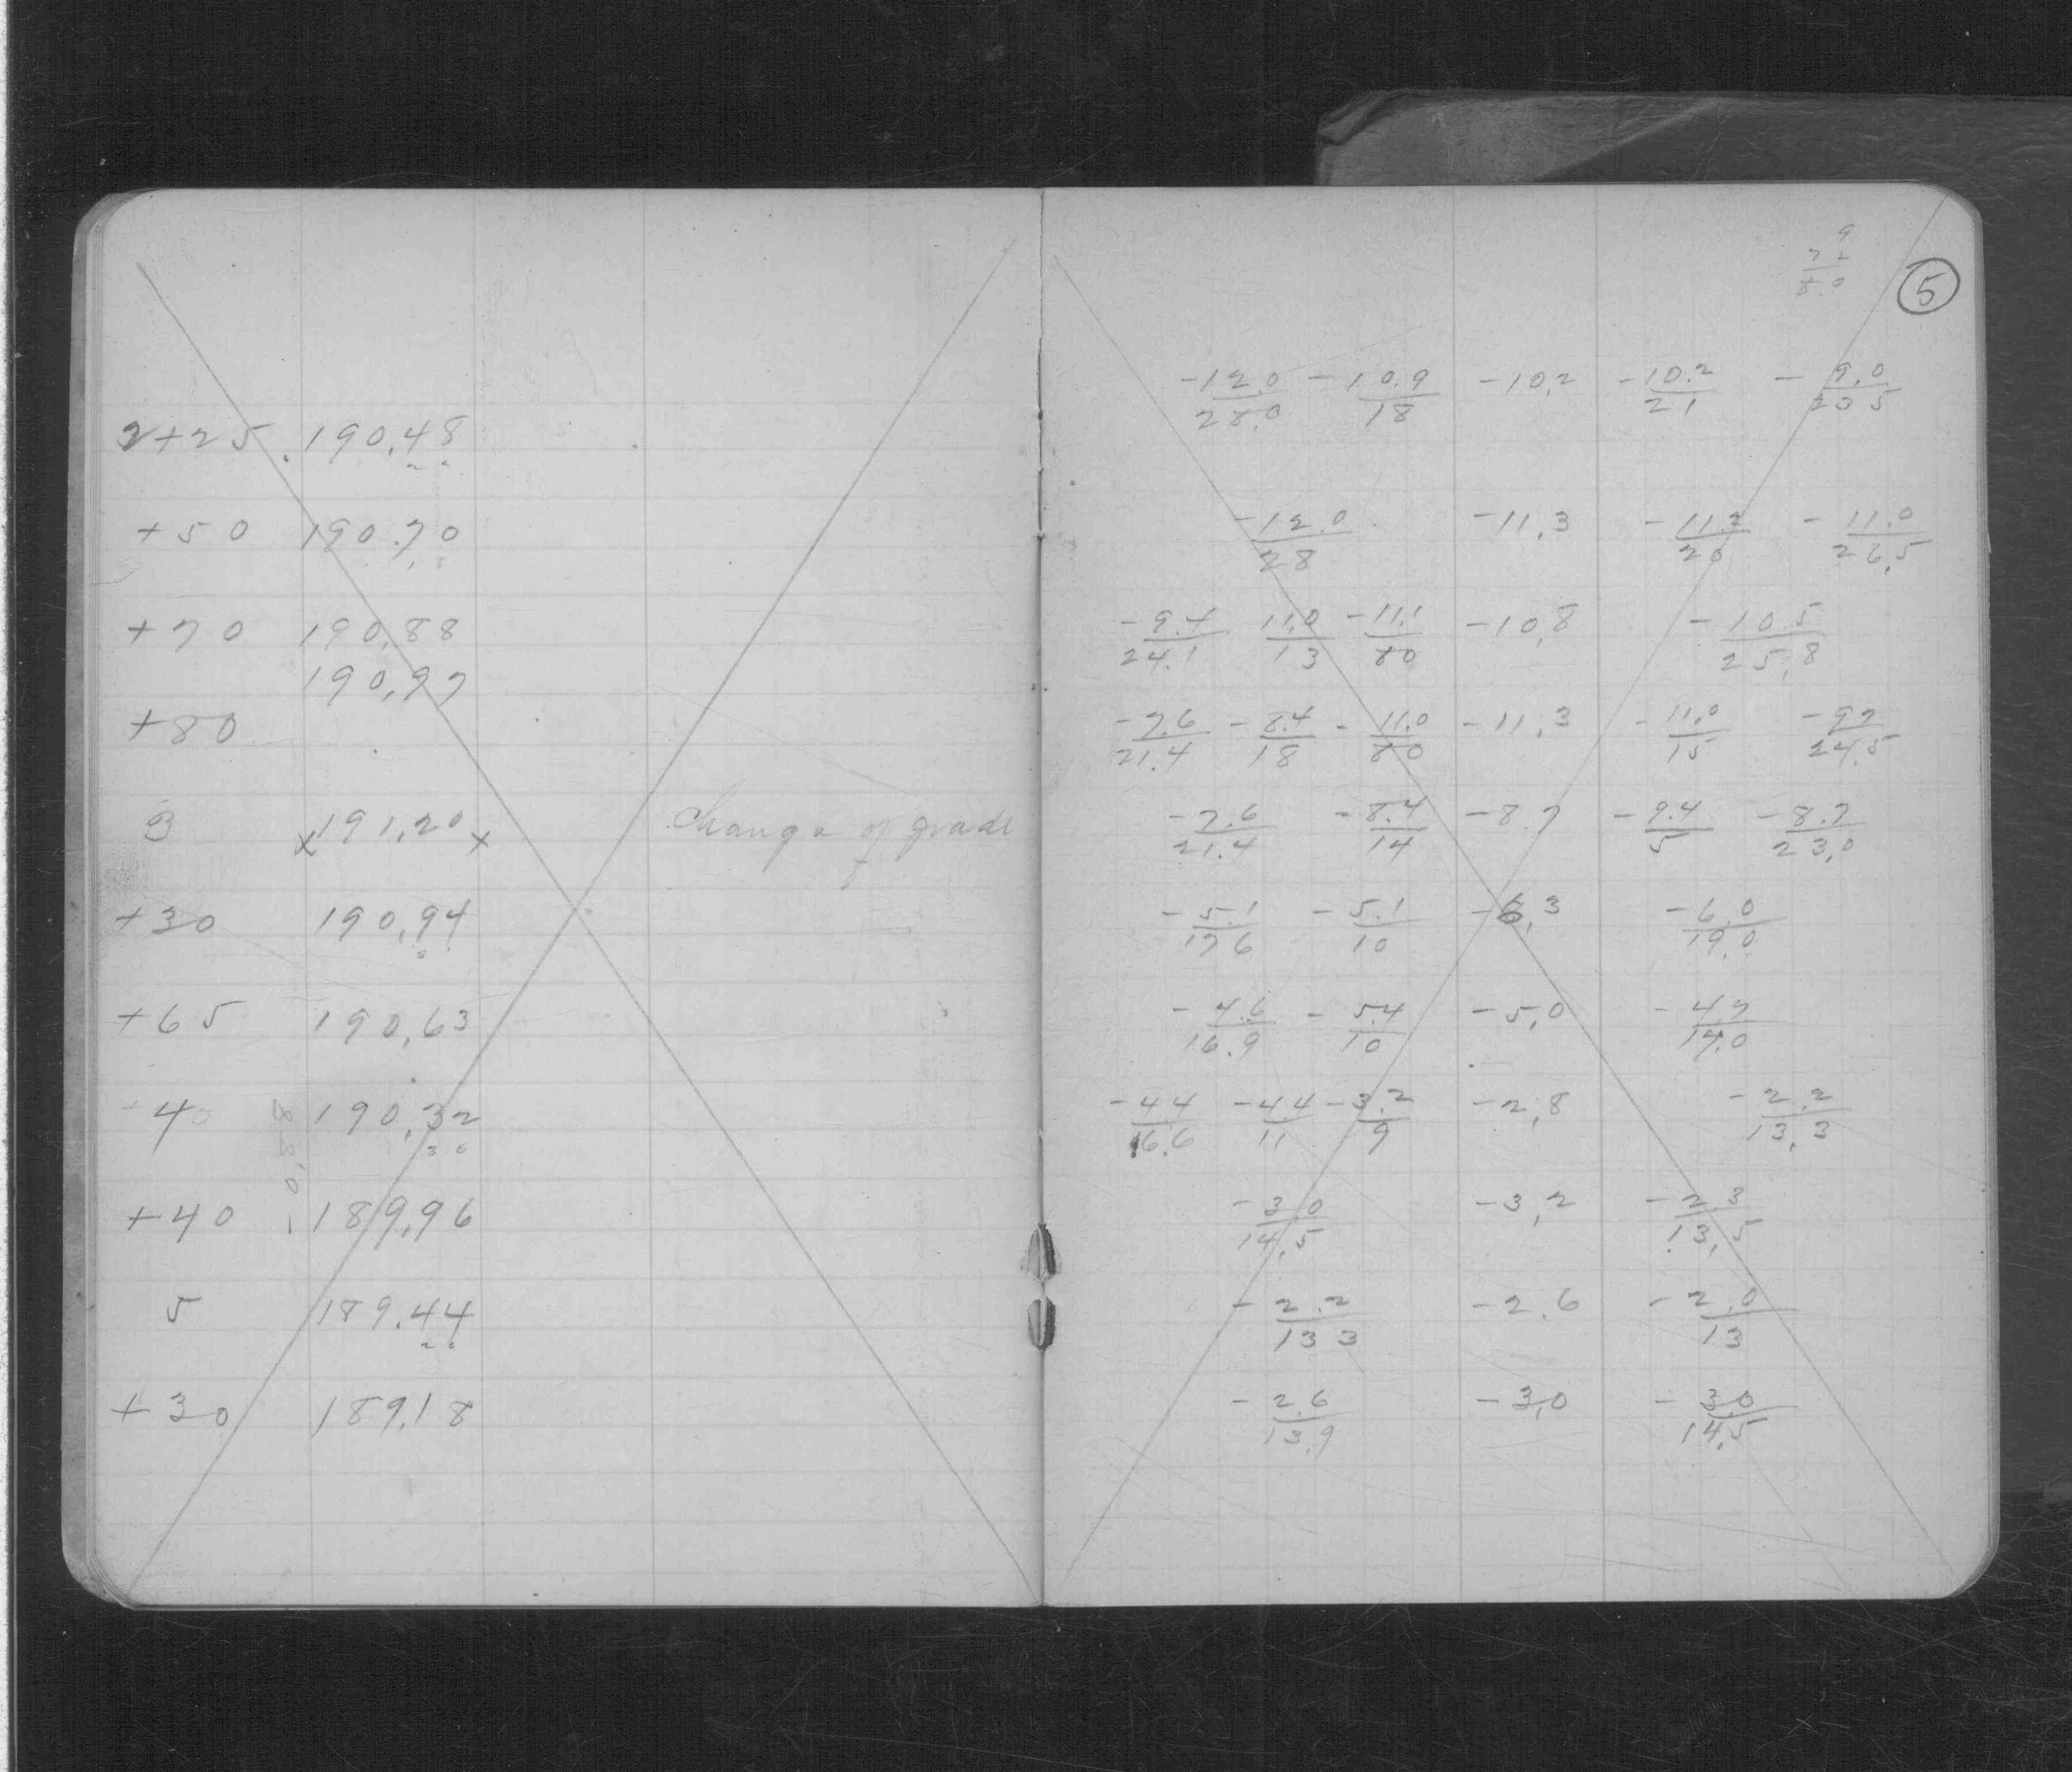 2+25 190.48
+50 190.70
+70 190.88
190.97
+80
3 x191.20x Change of grade
+30 190.94
+65 190.63
40 190.32
+40 189.96
5 189.44
+30 189.18
5
-12.0/28.0 -10.9/18 -10.2 -10.2/21 -9.0/23.5
-12.0/28 -11.3 -11.2/20 -11.0/26.5
-9.4/24.1 11.0/13 -11.1/80 -10.8 -10.5/25.8
-7.6/21.4 -8.4/18 -11.0/80 -11.3 -11.0/15 -97/24.5
-7.6/21.4 -8.4/14 -8.7 -9.4/5 -8.7/23.0
-5.1/176 -5.1/10 -6.3 -6.0/19.0
-4.6/16.9 -5.4/10 -5.0 -4.7/14.0
-44/16.6 -4.4/11 -3.2/9 -2.8 -2.2/13.3
-3.0/14.5 -3.2 -2.3/13.5
-2.2/133 -2.6 -2.0/13
-2.6/13.9 -3.0 -3.0/14.5